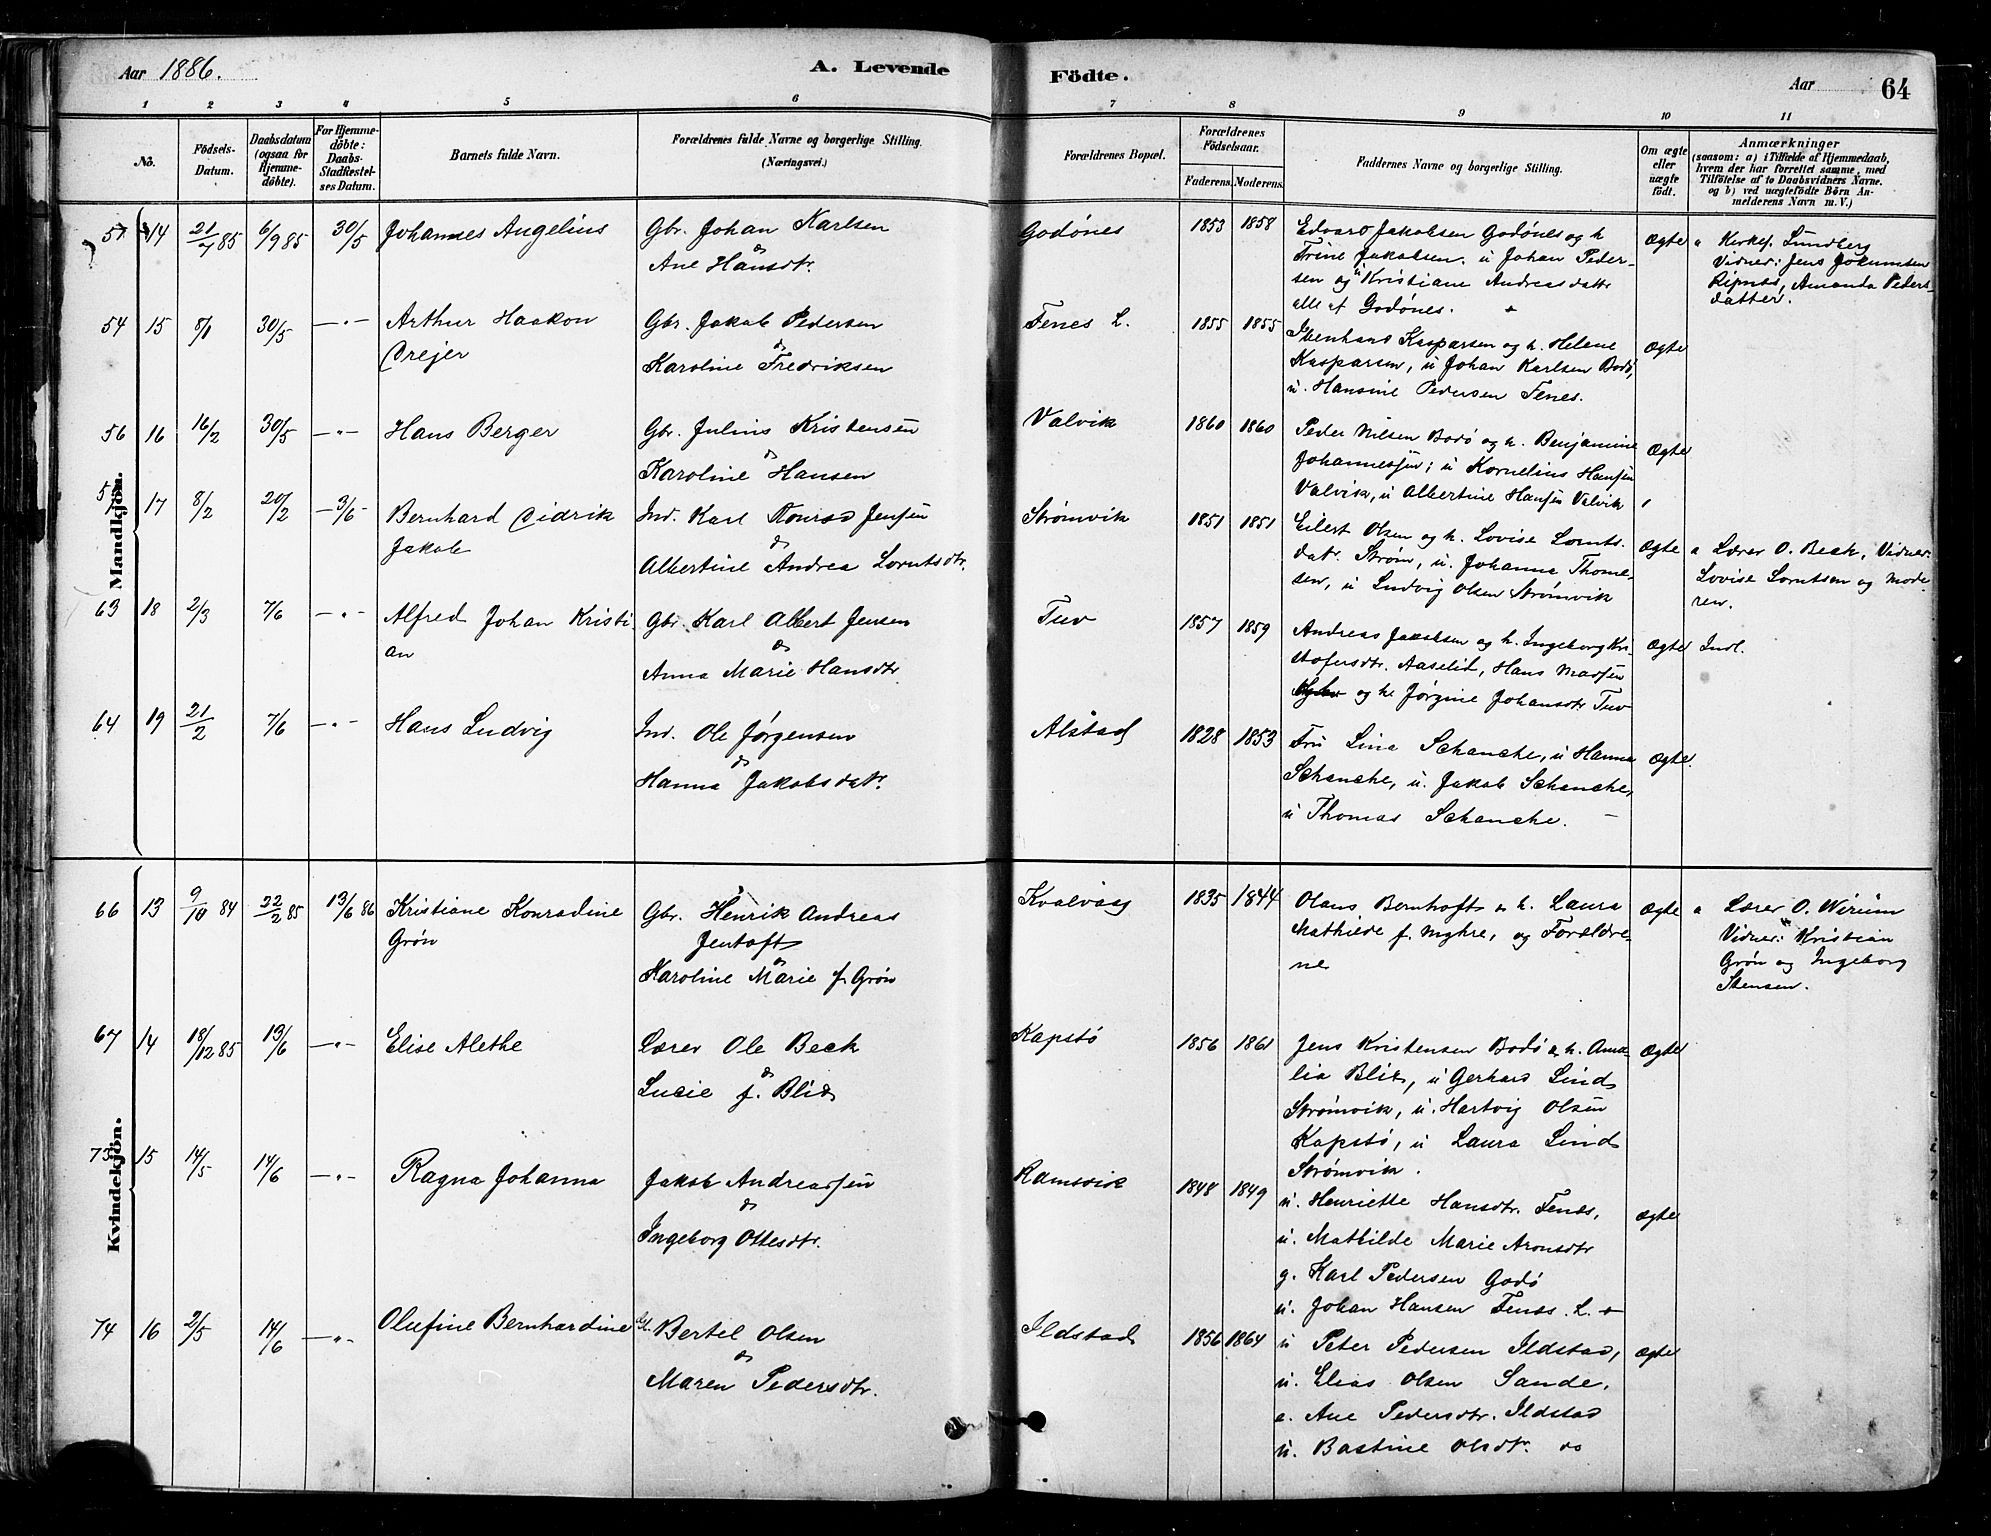 Aar 1886.
A. Levende
Födte.
Aar
64
1 2 3 4 5 6 7 8 9 10 11
No.
Födsels-
Datum.
Daabsdatum
(ogsaa for
Hjemme-
döbte).
For Hjemme-
döbte:
Daabs-
Stadfæstel-
ses Datum.
Barnets fulde Navn.
Forældrenes fulde Navne og borgerlige Stilling.
(Næringsvei.)
Forældrenes Bopæl.
Forældrenes
Födselsaar.
Faderens. Moderens.
Faddernes Navne og borgerlige Stilling.
Om ægte
eller
uægte
födt.
Anmærkninger
(saasom: a) i Tilfælde af Hjemmedaab,
hvem der har forrettet samme, med
Tilföielse af to Daabsvidners Navne.
og b) ved uægtefödte Börn An-
melderens Navn m. V.)
Mandkjön.
57 14 21/7 85 6/9 85 30/5 Johannes Angelius
Gbr. Johan Karlsen
&
Ane Hansdtr.
Godønes 1853 1858
Edvard Jakobsen Godønes og h
Trine Jakobsen. u Johan Peder-
sen og u Kristiane Andreasdatter
alle af Godønes.
Ægte
a Kirkes. Lundberg
Vidner: Jens Jokumsen
Ripnes, Amanda Peders
datter.
54 15 8/1 30/5 —"— Arthur Haakon
Crejer
Gbr. Jakob Pedersen
&
Karoline Fredriksen
Fenes L. 1855 1855
Ebenhard Kaspersen og h. Helene
Kaspersen, u Johan Karlsen Bodø,
u. Hansine Pedersen Fenes.
Ægte
56 16 16/2 30/5 —"— Hans Berger
Gbr. Julius Kristensen
&
Karoline Hansen
Valvik 1860 1860
Peder Nilsen Bodø og h. Benjamine
Johannessen; u Kornelius Hansen
Valvik, u Albertine Hansen Valvik
Ægte
17 8/2 20/2 —3/6— Bernhard Didrik
Jakob
Ind. Karl Konrad Jensen
&
Albertine Andrea Lorntsdtr.
Strømvik 1851 1851
Eilert Olsen og h. Lovise Lornts-
datr. Strøm, u. Johanna Thome-
sen, u Ludvig Olsen Strømvik
Ægte
a Lærer O. Beck, Vidner:
Lovise Lorntsen og Mode
ren.
63 18 2/3 7/6 —"— Alfred Johan Kristi-
an
Gbr. Karl Albert Jensen
&
Anna Marie Hansdtr
Tuv 1857 1859
Andreas Jakobsen og h. Ingeborg Kri-
stofersdtr. Aaselid, Hans Madsen
og h Jørgine Johansdtr Tuv
Ægte Indl.
64 19 21/2 7/6 —"— Hans Ludvig
Ind. Ole Jørgensen
&
Hanna Jakobsdatr.
Alstad 1828 1853
Fru Lina Schanche, u Hanna
Schanche, u. Jakob Schanche,
u Thomas Schanche. —
Ægte.
Kvindekjön.
66 13 9/10 84 22/2 85 13/6 86 Kristiane Konradine
Grøn
Gbr. Henrik Andreas
Jentoft
&
Karoline Marie f. Grøn
Kvalvaag 1835 1844
Olaus Bernhoft & h. Laura
Mathilde f. Myhre, og Forældre-
ne
Ægte
a Lærer O. Wirum
Vidner: Kristian
Grøn og Ingeborg
Stensen.
67 14 18/12 85 13/6 —"— Elise Alethe
Lærer Ole Beck
&
Lucie f. Blix
Kapstø 1856 1861
Jens Kristensen Bodø & h. Ama-
lia Blix, u Gerhard Lind
Strømvik, u. Hartvig Olsen
Kapstø, u Laura Lind
Strømvik.
Ægte
73 15 14/5 14/6 —"— Ragna Johanna
Jakob Andreassen
&
Ingeborg Ottesdtr.
Ramsvik 1848 1849
u. Henriette Hansdtr. Fenes,
u. Mathilde Marie Aronsdtr
g. Karl Pedersen Godø
u. Johan Hansen Fenes. L.
Ægte
74 16 2/5 14/6 —"— Olufine Bernhardine
Bertel Olsen
&
Maren Pedersdtr.
Ildstad 1856 1864
u Peter Pedersen Ildstad,
u. Elias Olsen Sande,
e. Ane Pedersdtr. Ildstad
u. Bastine Olsdtr. do
Ægte